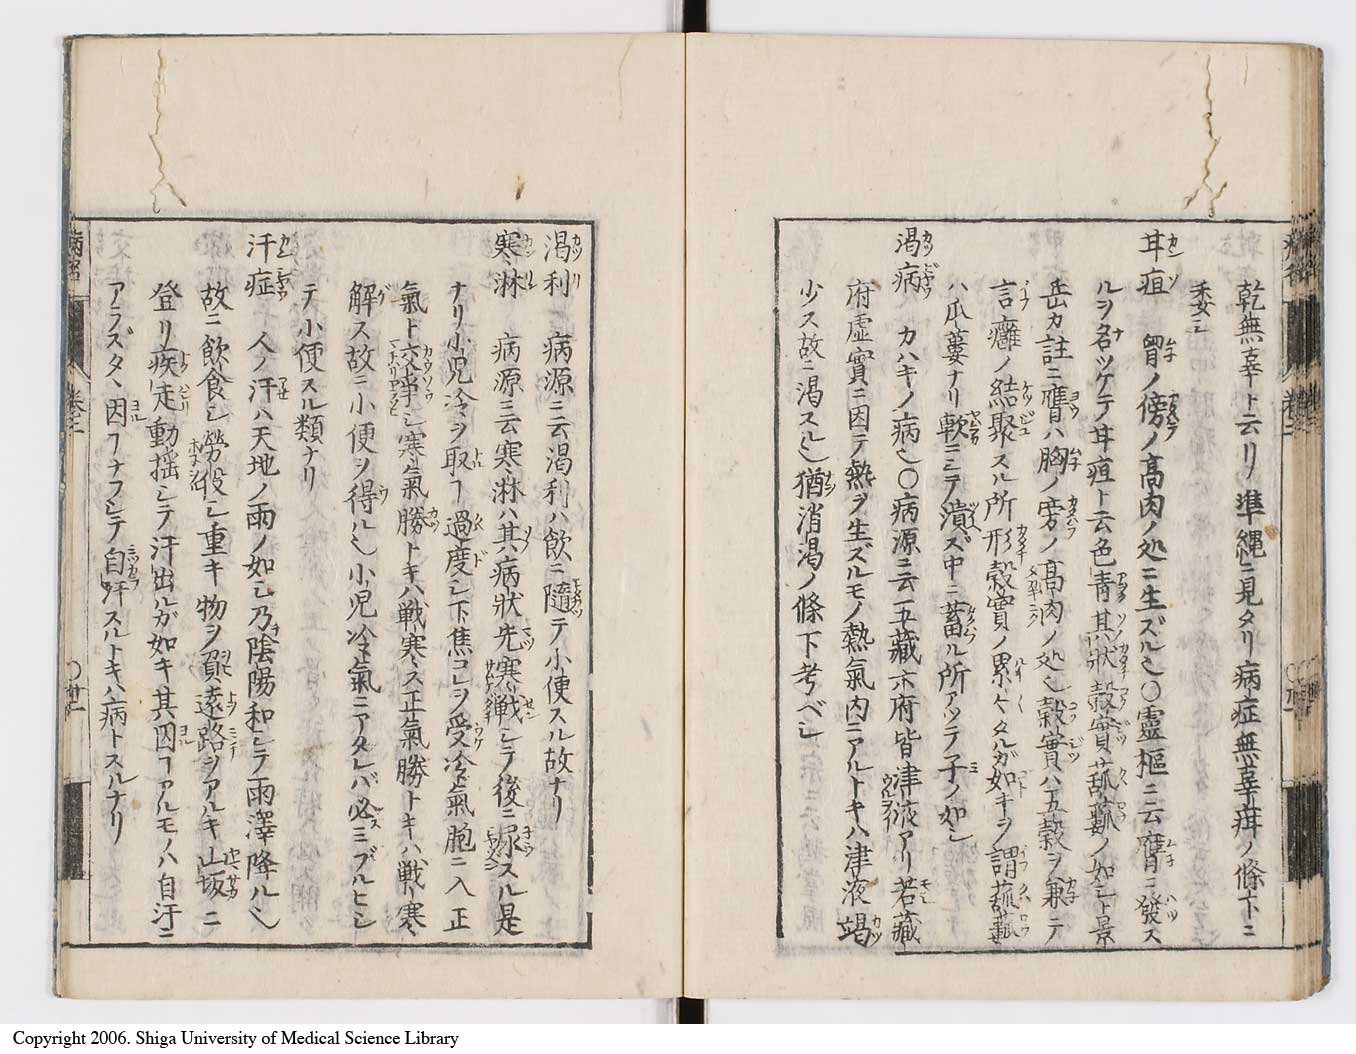 乾無辜ト云リ準縄ニ見タリ病症無辜疳ノ條下ニ
委シ
甘疽 胷ノ傍ノ高肉ノ処ニ生ズル也〇靈樞ニ云膺ニ發ス
ルヲ名ツケテ甘疽ト云色青其狀穀實菰𤬏ノ如シト景
岳カ註ニ膺ハ胸ノ旁ノ高肉ノ処也穀實ハ五穀ヲ兼テ
言癰ノ結聚スル所形穀實ノ累々タルガ如キヲ謂菰𤬏
ハ瓜蔞ナリ軟ニシテ潰ス中ニ蓄ル所アツテ子ノ如シ
渇病 カハキノ病也〇病源ニ云五藏六府皆津液アリ若藏
府虚實ニ因テ熱ヲ生ズルモノ熱氣内ニアルトキハ津液竭
少ス故ニ渇スル也猶消渇ノ條下考ベシ
渇利 病源ニ云渇利ハ飲ニ隨テ小便スル故ナリ
寒淋 病源ニ云寒淋ハ其病狀先寒戰シテ後ニ尿スル是
ナリ小児冷ヲ取コ過度シ下焦コレヲ受冷氣胞ニ入正
氣ト交爭シ寒氣勝トキハ戰寒ス正氣勝トキハ戰寒
解ス故ニ小便ヲ得ル也小児冷氣ニアタレバ必ミブルヒシ
テ小便スル類ナリ
汗症 人ノ汗ハ天地ノ雨ノ如シ乃陰陽和シテ雨澤降ル也
故ニ飲食シ勞役シ重キ物ヲ負遠路ヲアルキ山坂ニ
登リ疾走動揺シテ汗出ルガ如キ其因コアルモノハ自汗ニ
アラズタヽ因コナフシテ自汗スルトキハ病トスルナリ
Copyright 2006. Shiga University of Medical Science Library